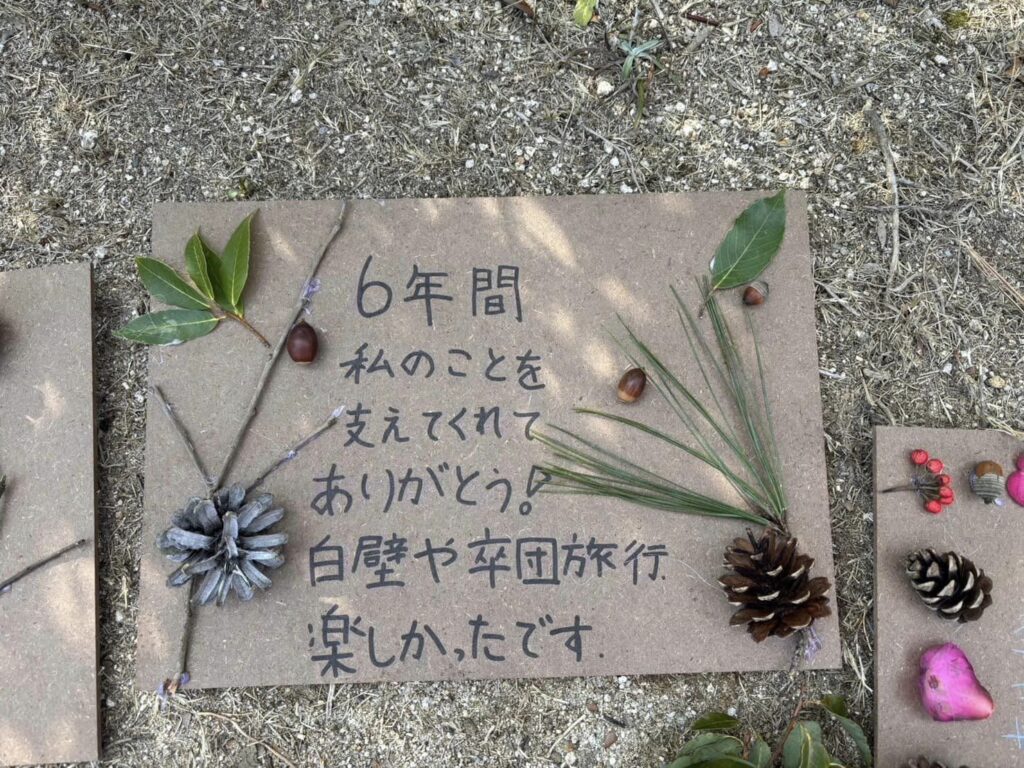 6年間
私のことを
支えてくれて
ありがとう!
白壁や卒団旅行
楽しかったです.